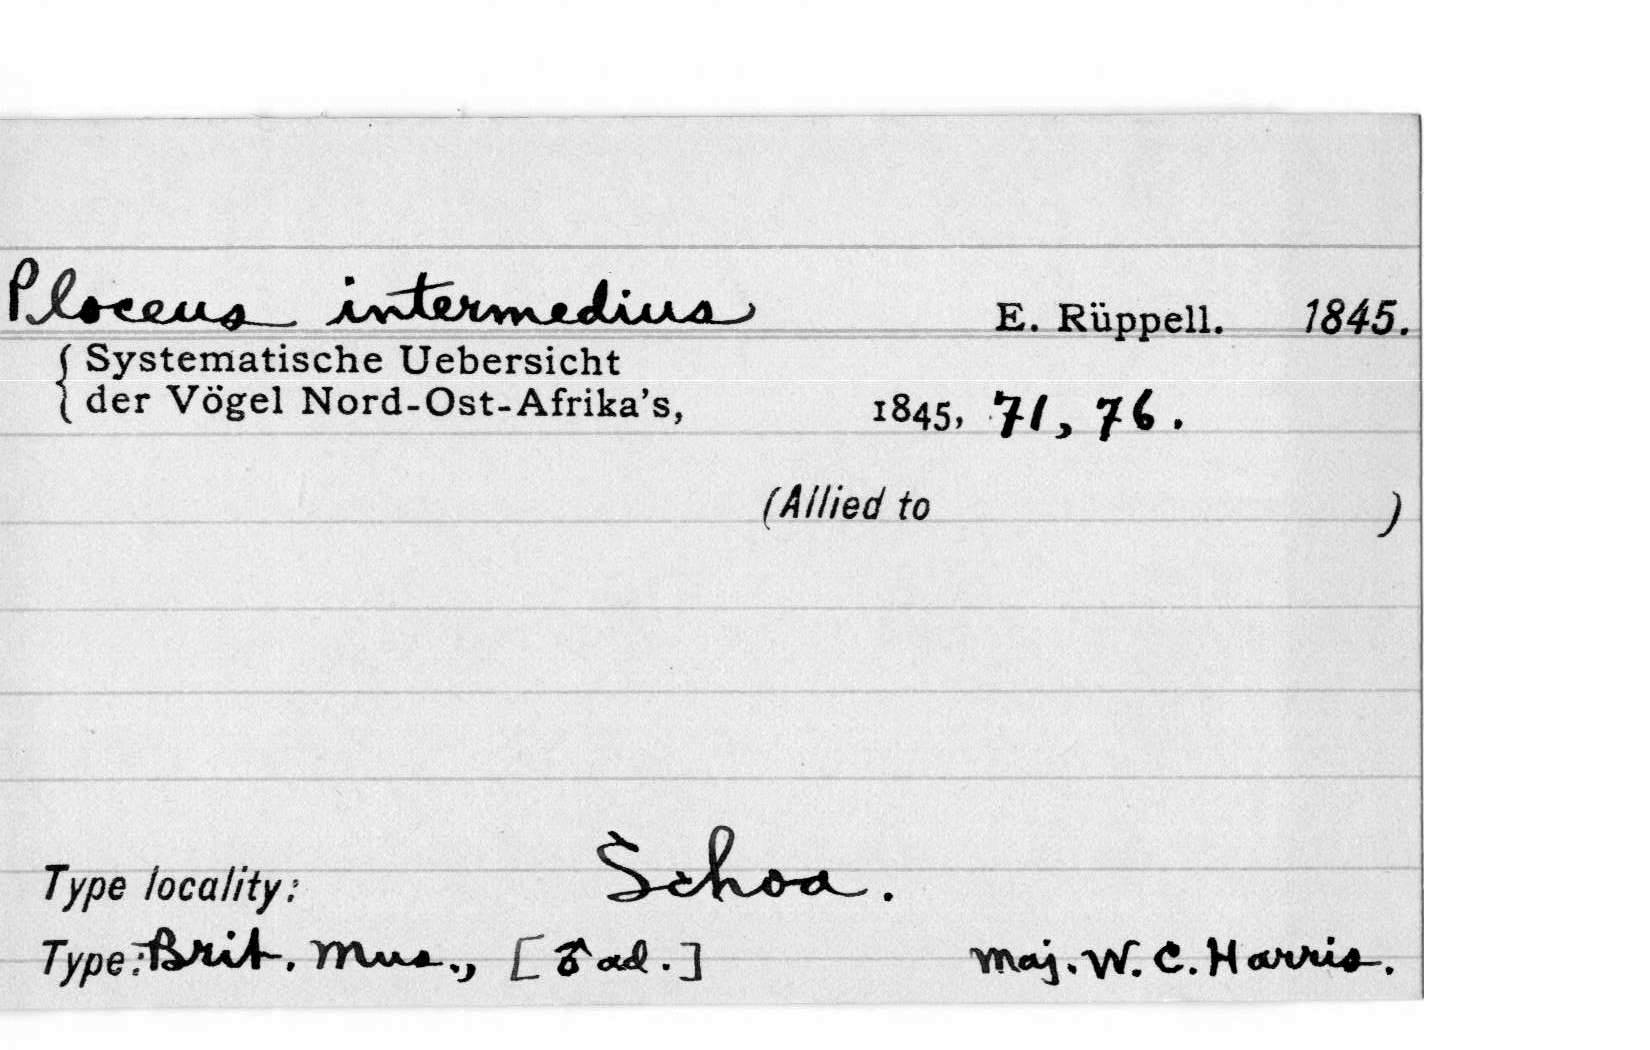 Ploceus intermedius E. Rüppell. 1845.
{ Systematische Uebersicht
der Vögel Nord-Ost-Afrika's, 1845, 71, 76.
(Allied to )
Type locality: Schoa.
Type: Brit. Mus., [♂ ad.] Maj. W. C. Harris.